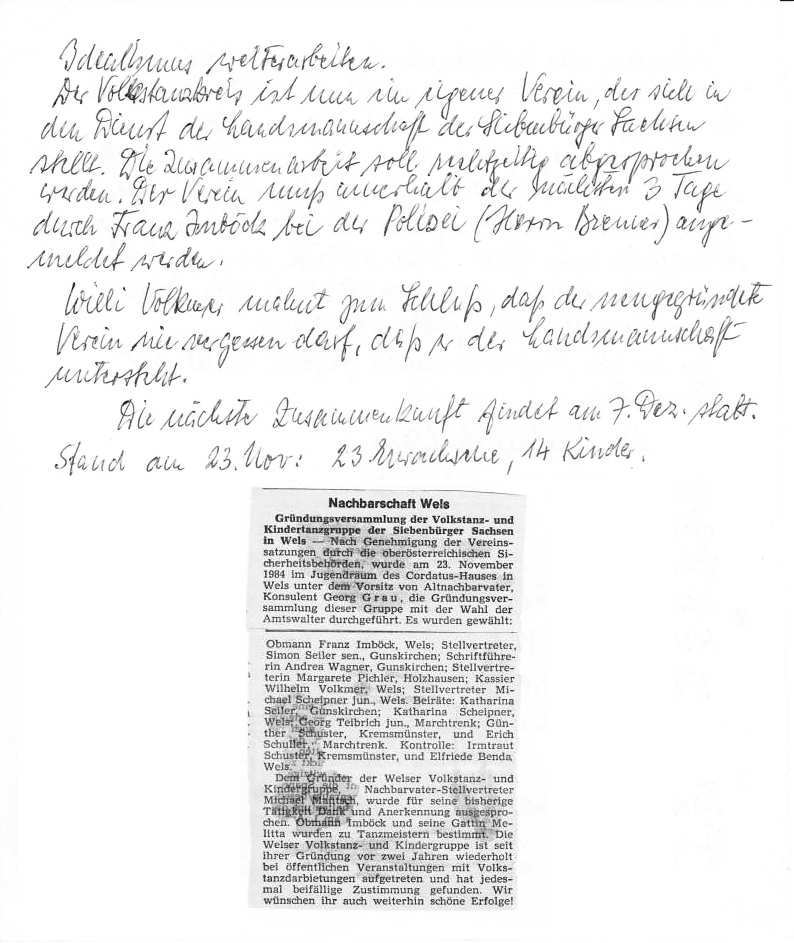 Idealismus weiterarbeiten.
Der Volkstanzkreis ist nun ein eigener Verein, der sich in
den Dienst der Landsmannschaft der Siebenbürger Sachsen
stellt. Die Zusammenarbeit soll rechtzeitig abgesprochen
werden. Der Verein muß innerhalb der nächsten 3 Tage
durch Franz Imböck bei der Polizei (Herrn Bremer) ange-
meldet werden.
Willi Volkmer mahnt zum Schluß, daß der neugegründete
Verein nie vergessen darf, daß er der Landsmannschaft
untersteht.
Die nächste Zusammenkunft findet am 7. Dez. statt.
Stand am 23. Nov: 23 Erwachsene, 14 Kinder.
Nachbarschaft Wels
Gründungsversammlung der Volkstanz- und
Kindertanzgruppe der Siebenbürger Sachsen
in Wels — Nach Genehmigung der Vereins-
satzungen durch die oberösterreichischen Si-
cherheitsbehörden, wurde am 23. November
1984 im Jugendraum des Cordatus-Hauses in
Wels unter dem Vorsitz von Altnachbarvater,
Konsulent Georg Grau, die Gründungsver-
sammlung dieser Gruppe mit der Wahl der
Amtswalter durchgeführt. Es wurden gewählt:
Obmann Franz Imböck, Wels; Stellvertreter,
Simon Seiler sen., Gunskirchen; Schriftführe-
rin Andrea Wagner, Gunskirchen; Stellvertre-
terin Margarete Pichler, Holzhausen; Kassier
Wilhelm Volkmer, Wels; Stellvertreter Mi-
chael Scheipner jun., Wels. Beiräte: Katharina
Seiler, Gunskirchen; Katharina Scheipner,
Wels; Georg Teibrich jun., Marchtrenk; Gün-
ther Schuster, Kremsmünster, und Erich
Schuller, Marchtrenk. Kontrolle: Irmtraut
Schuster, Kremsmünster, und Elfriede Benda
Wels.
Dem Gründer der Welser Volkstanz- und
Kindergruppe, Nachbarvater-Stellvertreter
Michael Mantsch, wurde für seine bisherige
Tätigkeit Dank und Anerkennung ausgespro-
chen. Obmann Imböck und seine Gattin Me-
litta wurden zu Tanzmeistern bestimmt. Die
Welser Volkstanz- und Kindergruppe ist seit
ihrer Gründung vor zwei Jahren wiederholt
bei öffentlichen Veranstaltungen mit Volks-
tanzdarbietungen aufgetreten und hat jedes-
mal beifällige Zustimmung gefunden. Wir
wünschen ihr auch weiterhin schöne Erfolge!